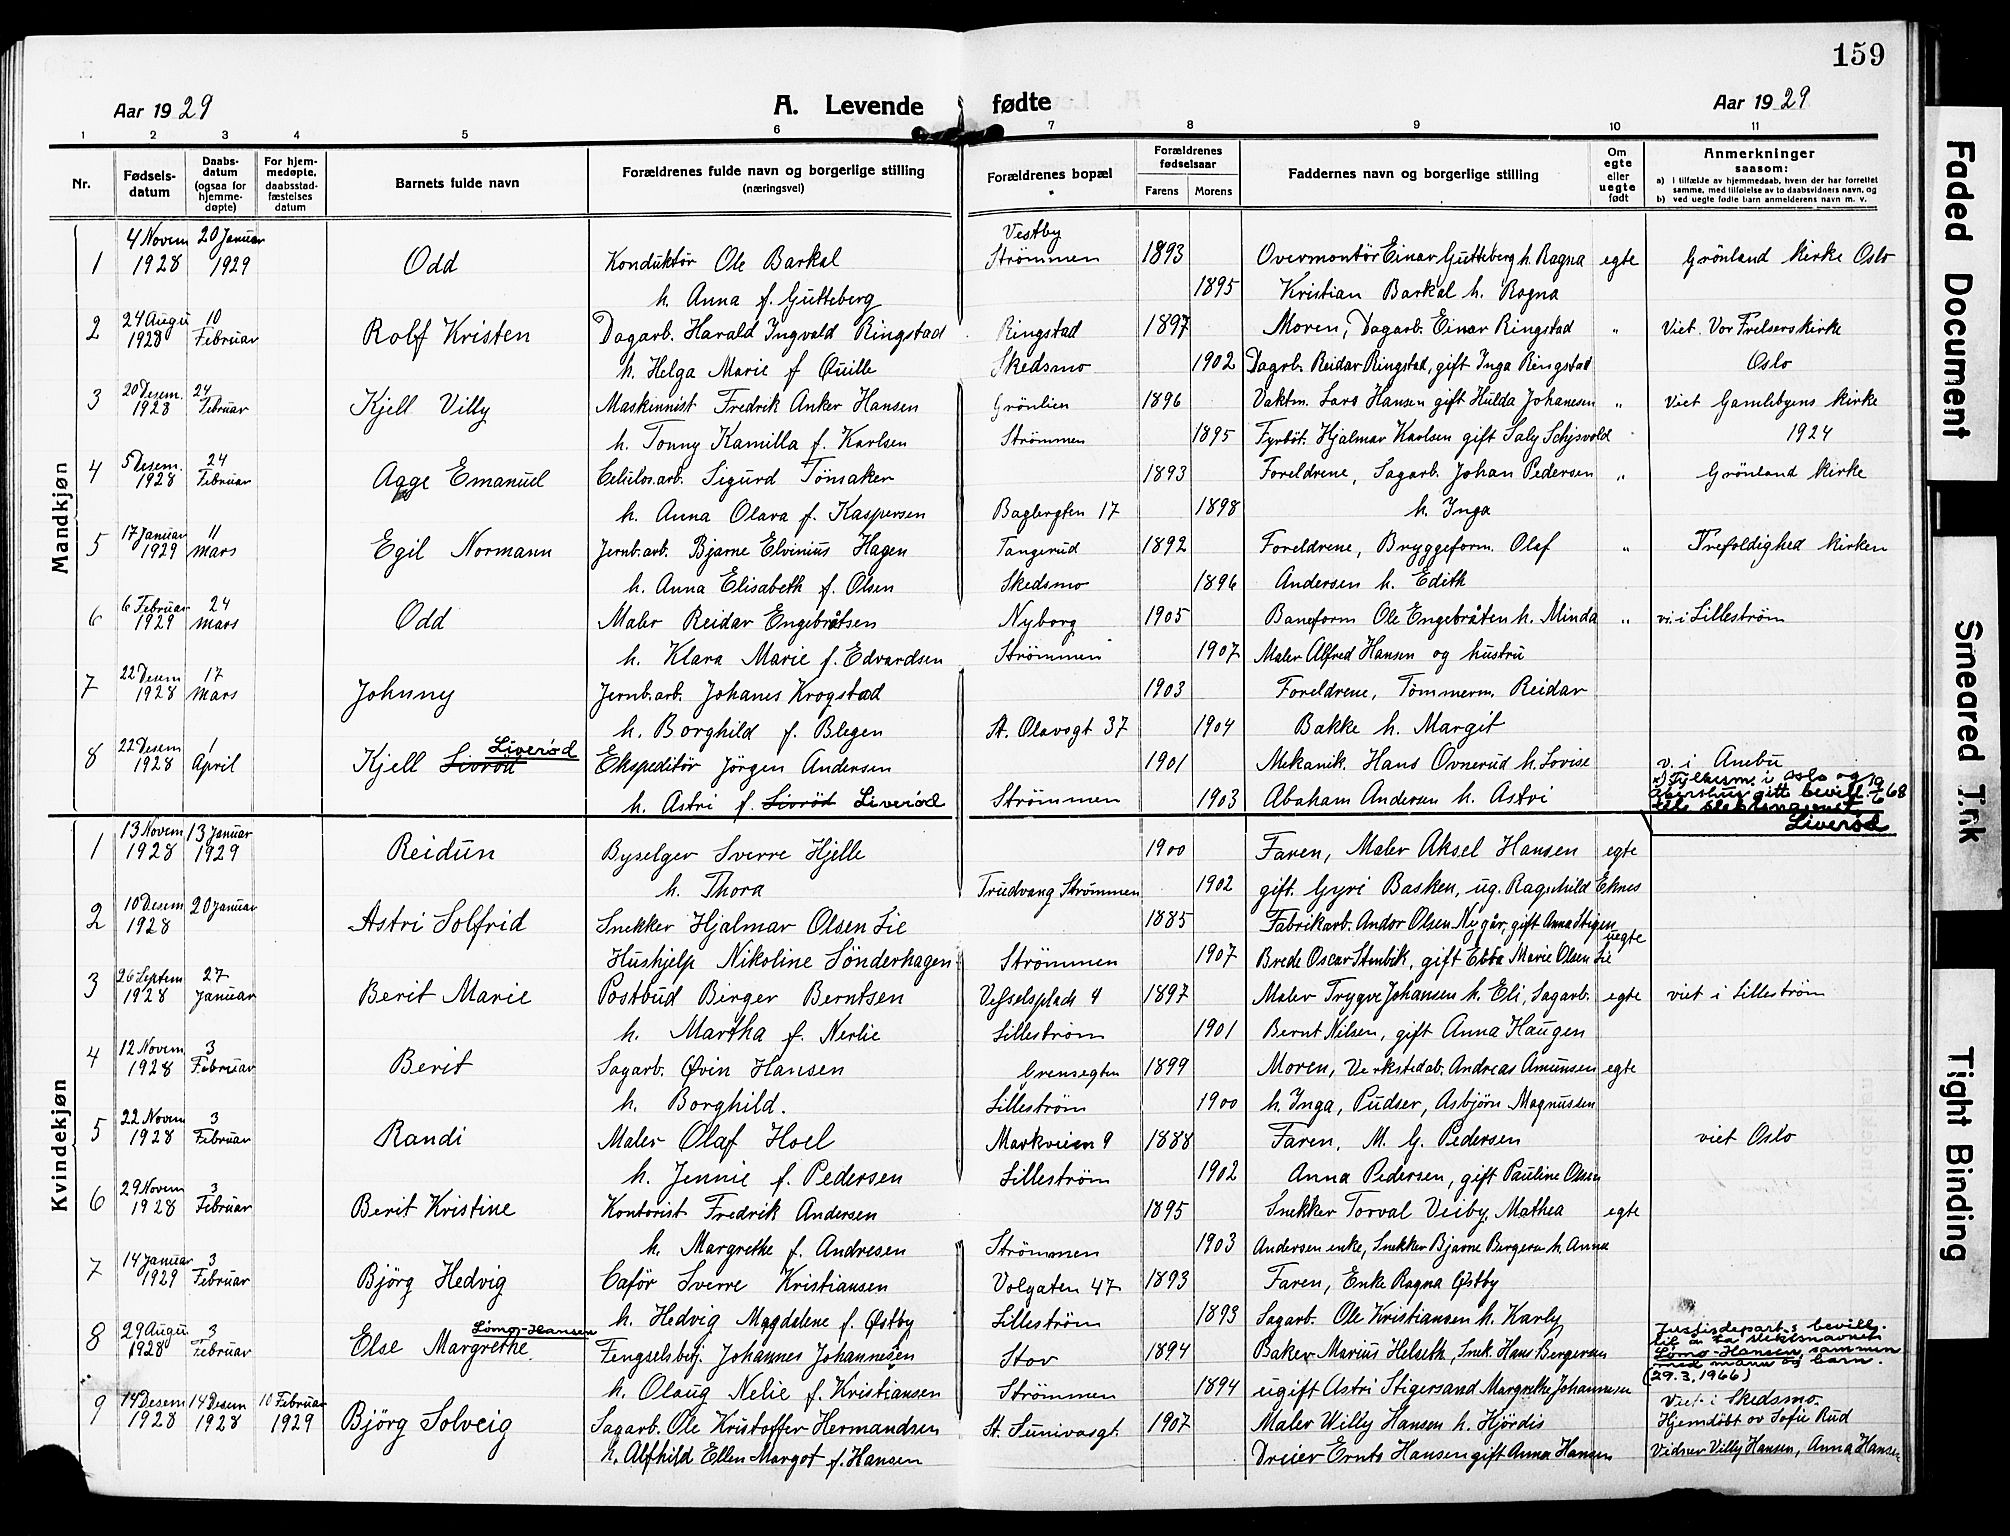 159
Aar 1929
A. Levende fødte
Aar 1929
1 2 3 4 5 6 7 8 9 10 11
Nr.
Fødselsdatum
Daabsdatum (ogsaa for hjemmedøpte)
For hjemmedøpte, daabsstadfæstelses datum
Barnets fulde navn
Forældrenes fulde navn og borgerlige stilling (næringsvei)
Forældrenes bopæl
Forældrenes fødselsaar
Farens Morens
Faddernes navn og borgerlige stilling
Om egte eller uegte født
Anmerkninger saasom:
a) i tilfælde av hjemmedaab, hvem der har forrettet samme, med tilføielse av to daabsvidners navn, og
b) ved uegte fødte barn anmelderens navn m. v.
Mandkjøn
1 4 Novem 1928 20 Januar 1929 Odd Konduktör Ole Barkal Vestby Strömmen 1893 Overmontör Einar Gutteberg h. Ragna egte Grönland kirke Oslo
h. Anna f. Gutteberg 1895 Kristian Barkal h. Ragna
2 24 Augu 1928 10 Februar Rolf Kristen Dagarb. Harald Ingvald Ringstad Ringstad 1897 Moren, Dagarb. Einar Ringstad " Viet. Vor Frelsers kirke
h. Helga Marie f Quille Skedsmo 1902 Dagarb. Reidar Ringstad, gift Inga Ringstad Oslo
3 20 Desem. 1928 24 Februar Kjell Villy Maskinnist Fredrik Anker Hansen Grönlien 1896 Vaktm. Lars Hansen gift Hulda Johanesen " Viet Gamlebyens kirke
h. Tonny Kamilla f. Karlsen Strömmen 1895 Fyrböt. Hjalmar Karlsen gift Saly 1924
4 5 Desem. 1928 24 Februar Aage Emanuel Celulosarb. Sigurd Tönsaker 1893 Foreldrene, Sagarb. Johan Pedersen " Grönland kirke
h. Anna Olava f. Kaspersen 17 1898 h. Inga
5 17 Januar 1929 11 Mars Egil Normann Jernb.arb. Bjarne Elvinius Hagen Tangerud 1892 Foreldrene, Bryggeform. Olaf " Trefoldighed kirken
h. Anna Elisabeth f. Olsen Skedsmo 1896 Andersen h. Edith
6 6 Februar 1929 24 Mars Odd Maler Reidar Engebråtsen Nyborg 1905 Baneform Ole Engebråten h. Minda " vi. i Lilleström
h. Klara Marie f. Edvardsen Strömmen 1907 Maler Alfred Hansen og hustru
7 22 Desem 1928 17 Mars Johnny Jernb.arb. Johanes Krogstad 1903 Foreldrene, Tömmerm. Reidar
h. Borghild f. Blegen St. Olavsgt 37 1904 Bakke h. Margit
8 22 Desem 1928 1 April Kjell Livröd Liveröd Ekspeditör Jörgen Andersen 1901 Mekanik. Hans Ovnerud h. Lovise v. i Anebu
h. Astri f. Livröd Liveröd Strömmen 1903 Abaham Andersen h. Astri
x) Fylkesm. i Oslo og Akershus gitt bevill. 19/6 68 til slektsnavnet Liveröd
Kvindekjøn
1 13 Novem 1928 13 Januar 1929 Reidun Byselger Sverre Hjelle 1900 Faren, Maler Aksel Hansen egte
h. Thora Trudvang Strömmen 1902 gift Gyri Basken, ug. Ragnhild Eknes
2 10 Desem 1928 20 Januar Astri Solfrid Snekker Hjalmar Olsen Lie 1885 Fabrikarb. Andor Olsen Nygår, gift Anna Stigen uegte
Hushjelp Nikoline Sönderhagen Strömmen 1907 Brede Oscar Stubik, gift Ebba Marie Olsen Lie
3 26 Septem 1928 27 Januar Berit Marie Postbud Birger Berntsen 4 1897 Maler Trygve Johansen h. Eli, Sagarb. egte viet i Lilleström
h. Martha f. Nerlie Lilleström 1901 Bernt Nilsen, gift Anna Haugen
4 12 Novem 1928 3 Februar Berit Sagarb. Øvin Hansen Grensegten 1899 Moren, Verkstedab. Andreas Amunsen egte
h. Borghild. Lilleström 1900 h. Inga, Pudser, Asbjörn Magnussen
5 22 Novem 1928 3 Februar Randi Maler Olaf Hoel Markveien 9 1888 Faren, M. G. Pedersen viet Oslo
h. Jennie f. Pedersen Lilleström 1902 Anna Pedersen, gift Pauline Olsen
6 29 Novem 1928 3 Februar Berit Kristine Kontorist Fredrik Andersen 1895 Snekker Torval Veiby, Mathea egte
h. Margrethe f. Andresen Strömmen 1903 Andersen enke, Snekker Bjarne Bergersen h. Anna
7 14 Januar 1929 3 Februar Björg Hedvig Caför Sverre Kristiansen Volgaten 47 1893 Faren, Enke Ragna Østby
h. Hedvig Magdalene f. Østby Lilleström 1893 Sagarb. Ole Kristiansen h. Karly
8 29 Augu 1928 3 Februar Else Margrethe Lömo-Hansen Fengselsbetj. Johannes Johannesen Stav 1894 Baker Marius Helseth, Snek. Hans Bergersen
h. Olaug Nelie f. Kristiansen Strömmen 1894 ugift Astri Stigersand Margrethe Johannesen
Justisdepart.s bevill. til å ta slektsnavnet Lömo-Hansen, sammen med mann og barn. (29.3.1966)
9 14 Desem 1928 14 Desem 1928 10 Februar 1929 Björg Solveig Sagarb. Ole Kristoffer Hermandsen St. Sunivasgt. 1907 Maler Willy Hansen h. Hjördis Viet i Skedsmo. Hjemdöbt av Sofie Rud
h. Alfhild Ellen Margot f. Hansen Dreier Ernts Hansen gift Anna Hansen Vidner Villy Hansen, Anna Hansen
Faded Document
Smeared Ink
Tight Binding